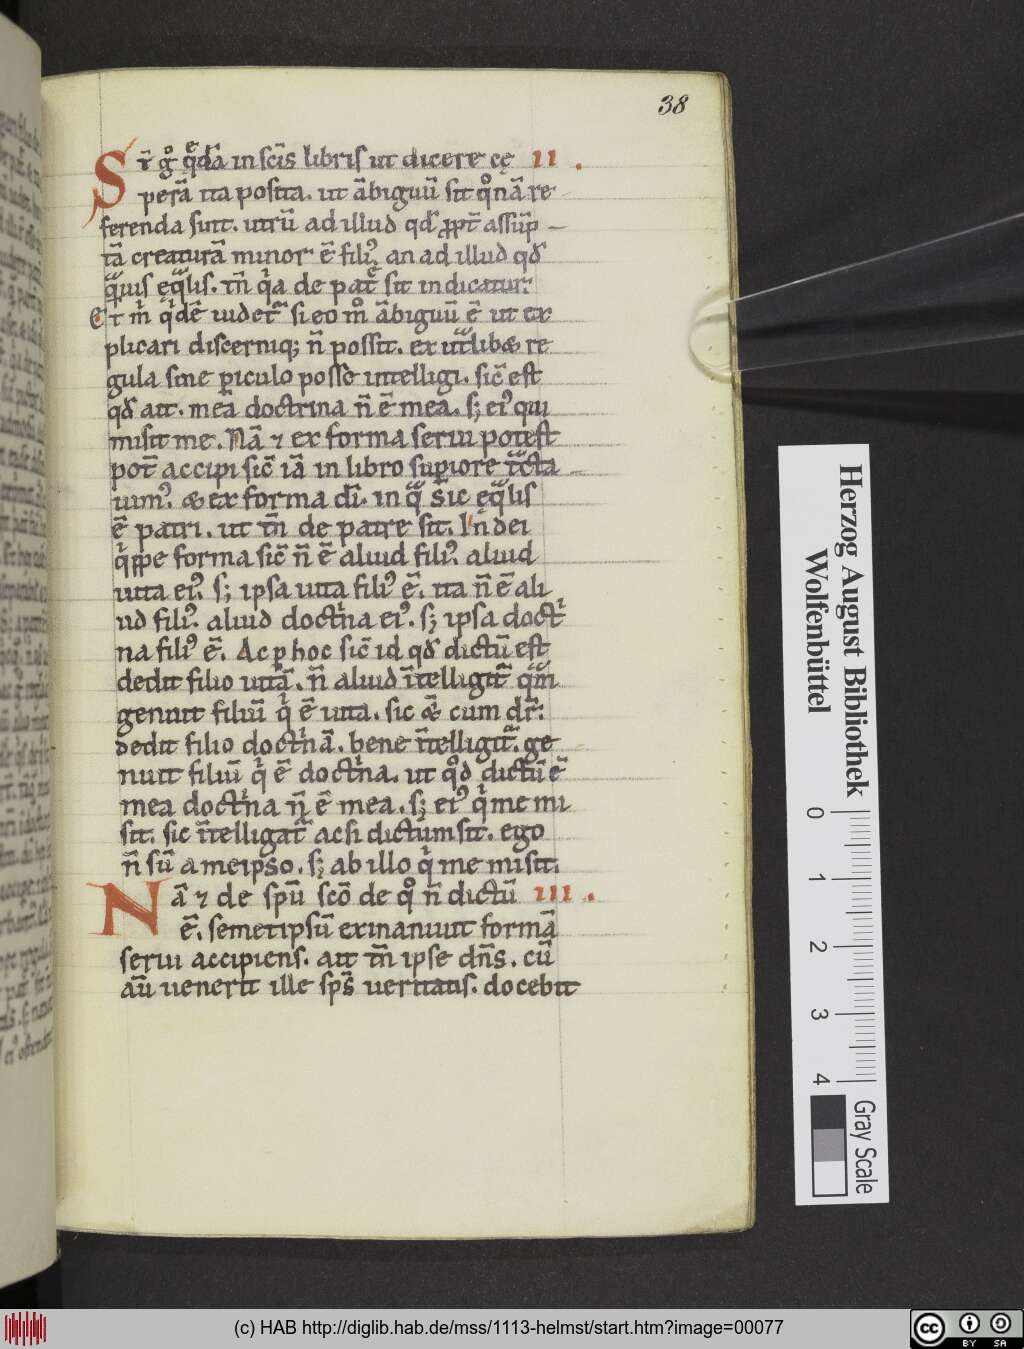 38
Sт̄ gͦ q̄dā in scīs libris ut dicere cę II.
perā ita posita. ut ābiguū sit qͦ nā re
ferenda sint. utrū ad illud qđ ꝓpt̄ assūp
tā creaturā minor ē filiꝰ, an ad illud qđ
quis eq̄lis. tn̄ qͥa de patͤ sit indicatur.
Et m̄ qͥdē uidet̄ si eo mͦ ābiguū ē ut ex
plicari discerniq; n̄ possit. ex ut̄libꝫ re
gula sine ꝑiculo posse intelligi. sic̄ est
qđ ait. mea doctrina n̄ ē mea. s; eiꝰ qui
misit me. Nā ⁊ ex forma serui potest
pot̄ accipi sic̄ iā in libro suꝑiore t̄cta
uimꝰ. & ex forma dī. in q̄ sic eq̄lis
ē patri. ut tn̄ de patre sit. In dei
qͥppe forma sic̄ n̄ ē aliud filiꝰ. aliud
uita eiꝰ. s; ipsa uita filiꝰ ē. ita n̄ ē ali
ud filiꝰ. aliud doctͥna eiꝰ. s; ipsa doctͥ
na filiꝰ ē. Ac ꝑ hoc sic̄ id qđ dictū est
dedit filio uitā. n̄ aliud ītelligit̄ qͣm
genuit filiū qͥ ē uita. sic & cum dr̄.
dedit filio doctͥnā. bene ītelligit̄. ge
nuit filiū qͥ ē doctͥna. ut qͦd dictū ē
mea doctͥna n̄ ē mea. s; eiꝰ qͥ me mi
sit. sic ītelligat̄ ac si dictum sit. ego
n̄ sū a meipso. s; ab illo qͥ me misit.
Nā ⁊ de spū scō de qͦ n̄ dictū III.
ē. semetipsū exinaniuit formā
serui accipiens. ait tn̄ ipse dn̄s. cū
aū uenerit ille sps̄ ueritatis. docebit
Herzog August Bibliothek
Wolfenbüttel
0 1 2 3 4
Gray Scale
(c) HAB http://diglib.hab.de/mss/1113-helmst/start.htm?image=00077
cc BY SA